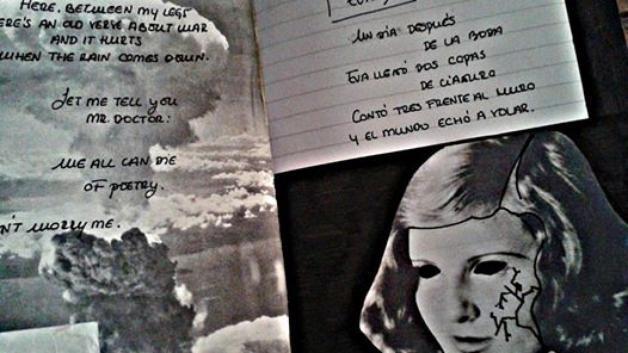 HERE, BETWEEN MY LEGS
HERE'S AN OLD VERVE ABOUT WAR
AND IT HURTS
WHEN THE RAIN COMES DOWN.
LET ME TELL YOU
MR. DOCTOR:
WE ALL CAN DIE
OF POETRY.
N'T WORRY ME.
UN DÍA DESPUÉS
DE LA BODA
EVA LLENÓ DOS COPAS
DE CIANURO
CONTÓ TRES FRENTE AL MURO
Y EL MUNDO ECHÓ A VOLAR.